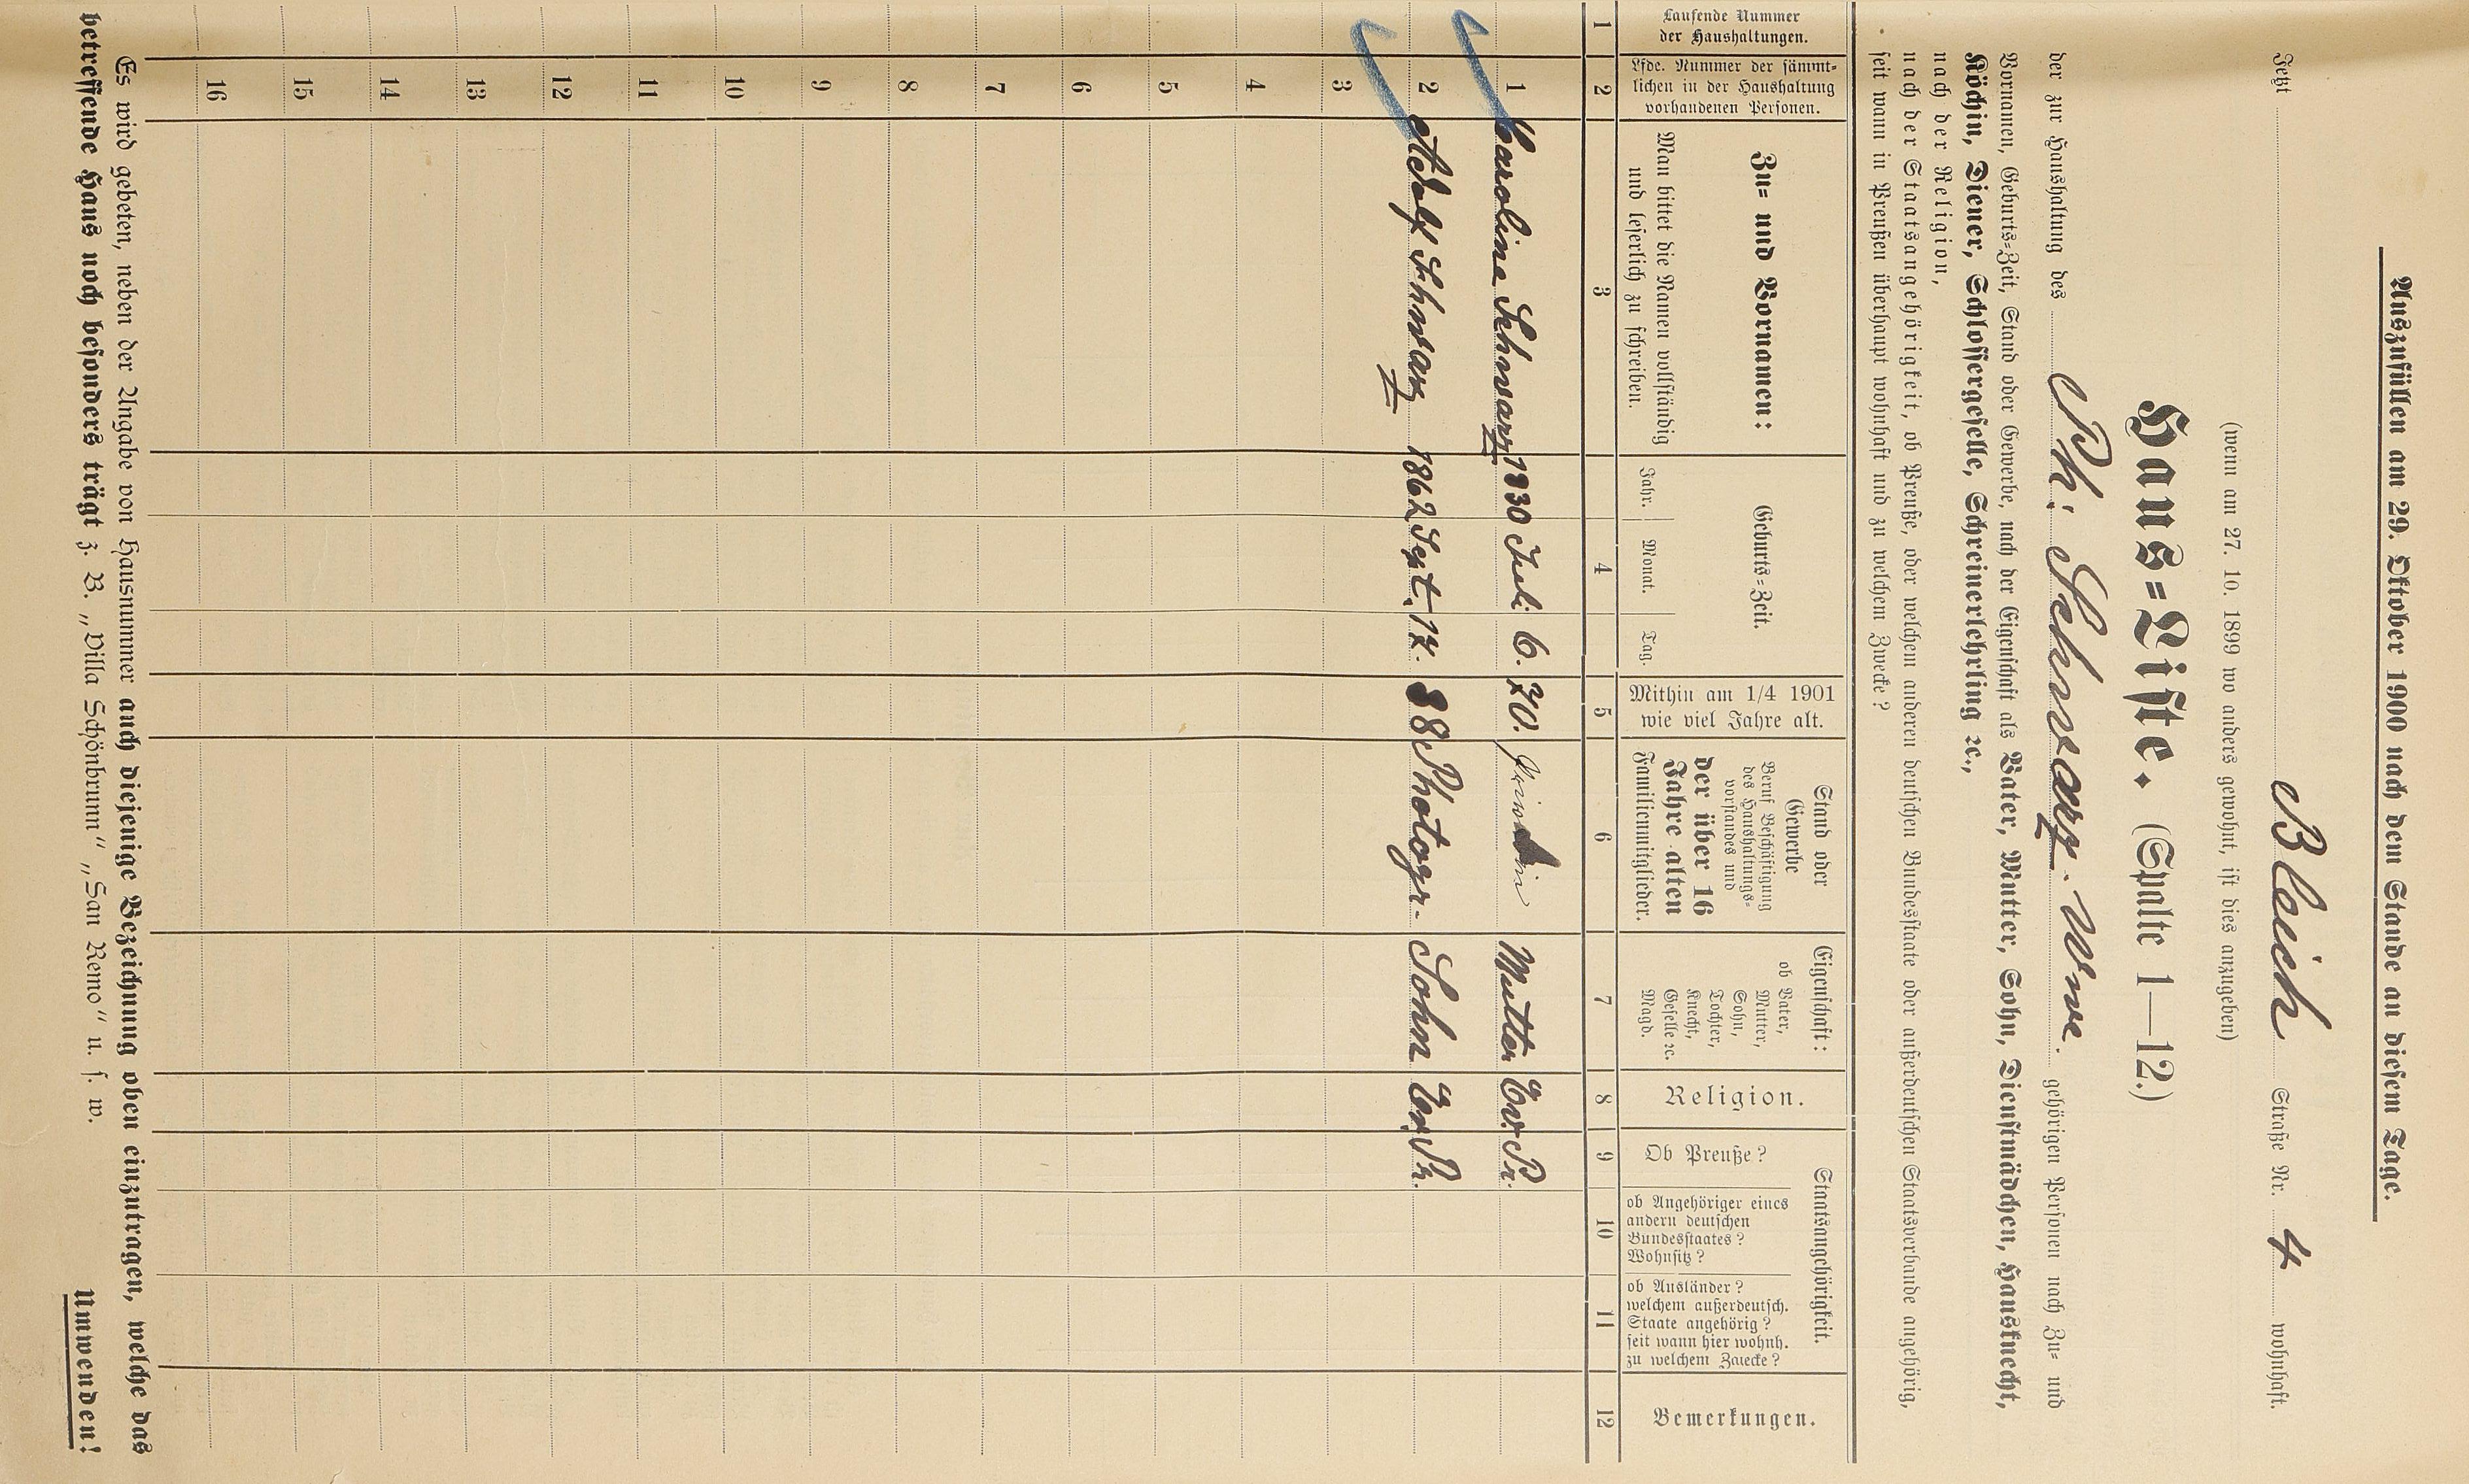 Auszufüllen am 29. Oktober 1900 nach dem Stande an diesem Tage.
Jetzt Bleich Straße Nr. 4 wohnhaft.
(wenn am 27. 10. 1899 wo anders gewohnt, ist dies anzugeben)
Haus-Liste. (Spalte 1—12.)
der zur Haushaltung des Ph. Schwarz Wwe. gehörigen Personen nach Zu- und
Vornamen, Geburts-Zeit, Stand oder Gewerbe, nach der Eigenschaft als Vater, Mutter, Sohn, Dienstmädchen, Hausknecht,
Köchin, Diener, Schlossergeselle, Schreinerlehrling ꝛc.,
nach der Religion,
nach der Staatsangehörigkeit, ob Preuße, oder welchem anderen deutschen Bundesstaate oder außerdeutschen Staatsverbande angehörig,
seit wann in Preußen überhaupt wohnhaft und zu welchem Zwecke?
Laufende Nummer
der Haushaltungen.
Lfde. Nummer der sämmt-
lichen in der Haushaltung
vorhandenen Personen.
Zu- und Vornamen:
Man bittet die Namen vollständig
und leserlich zu schreiben.
Geburts-Zeit.
Jahr. Monat. Tag.
Mithin am 1/4 1901
wie viel Jahre alt.
Stand oder
Gewerbe
Beruf Beschäftigung
des Haushaltungs-
vorstandes und
der über 16
Jahre alten
Familienmitglieder.
Eigenschaft:
ob Vater,
Mutter,
Sohn,
Tochter,
Knecht,
Geselle ꝛc.
Magd.
Religion.
Staatsangehörigkeit.
Ob Preuße?
ob Angehöriger eines
andern deutschen
Bundesstaates?
Wohnsitz?
ob Ausländer?
welchem außerdeutsch.
Staate angehörig?
seit wann hier wohnh.
zu welchem Zwecke?
Bemerkungen.
1 2 3 4 5 6 7 8 9 10 11 12
1 Caroline Schwarz 1830 Juli 6. 70. Mutter Ev. Pr.
2 Adolf Schwarz 1862 Sept. 17. 38 Photogr. Sohn Ev. Pr.
3
4
5
6
7
8
9
10
11
12
13
14
15
16
Es wird gebeten, neben der Angabe von Hausnummer auch diejenige Bezeichnung oben einzutragen, welche das
betreffende Haus noch besonders trägt z. B. „Villa Schönbrunn" „San Remo" u. s. w.
Umwenden!